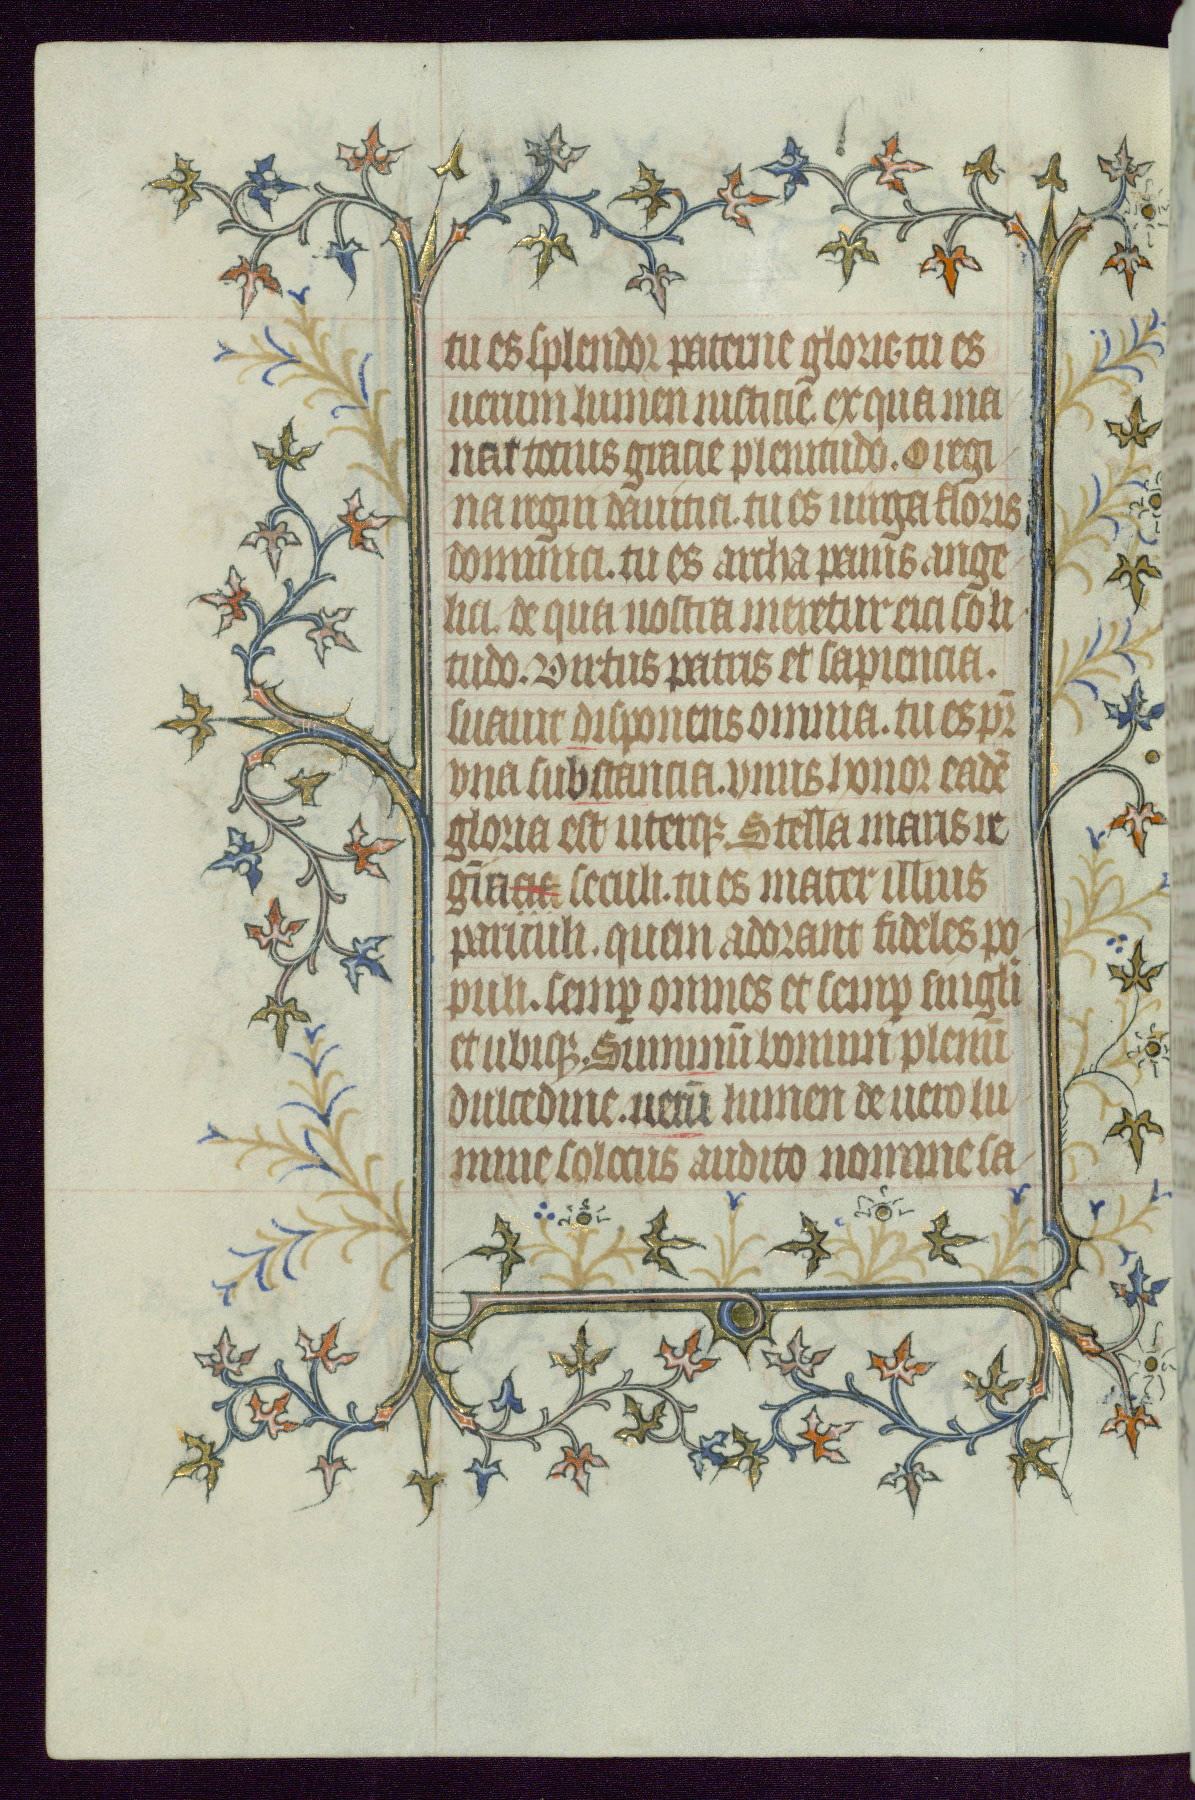 tu es splendor paterne glorie. tu es
uerum lumen iusticiē. ex qua ma
nat tocius gracie plenitudo. O regi
na regni dauitici. tu es uirga floris
dominici. tu es archa panis ange
lici. de qua nostra meretur eici sōli
tudo. Virtus patris et sapiencia.
suauit disponens omnia. tu es pr̄
vna substancia. vnus honor eadē
gloria est uterq3. Stella maris re
gīa seculi. tu es mater illius
paruuli. quem adorant fideles po
puli. semp̱ omnes et semp̱ singli
et ubiq3. Summū bonum plenū
dulcedine. uerū lumen de uero lu
mine solotus audito nomine sa